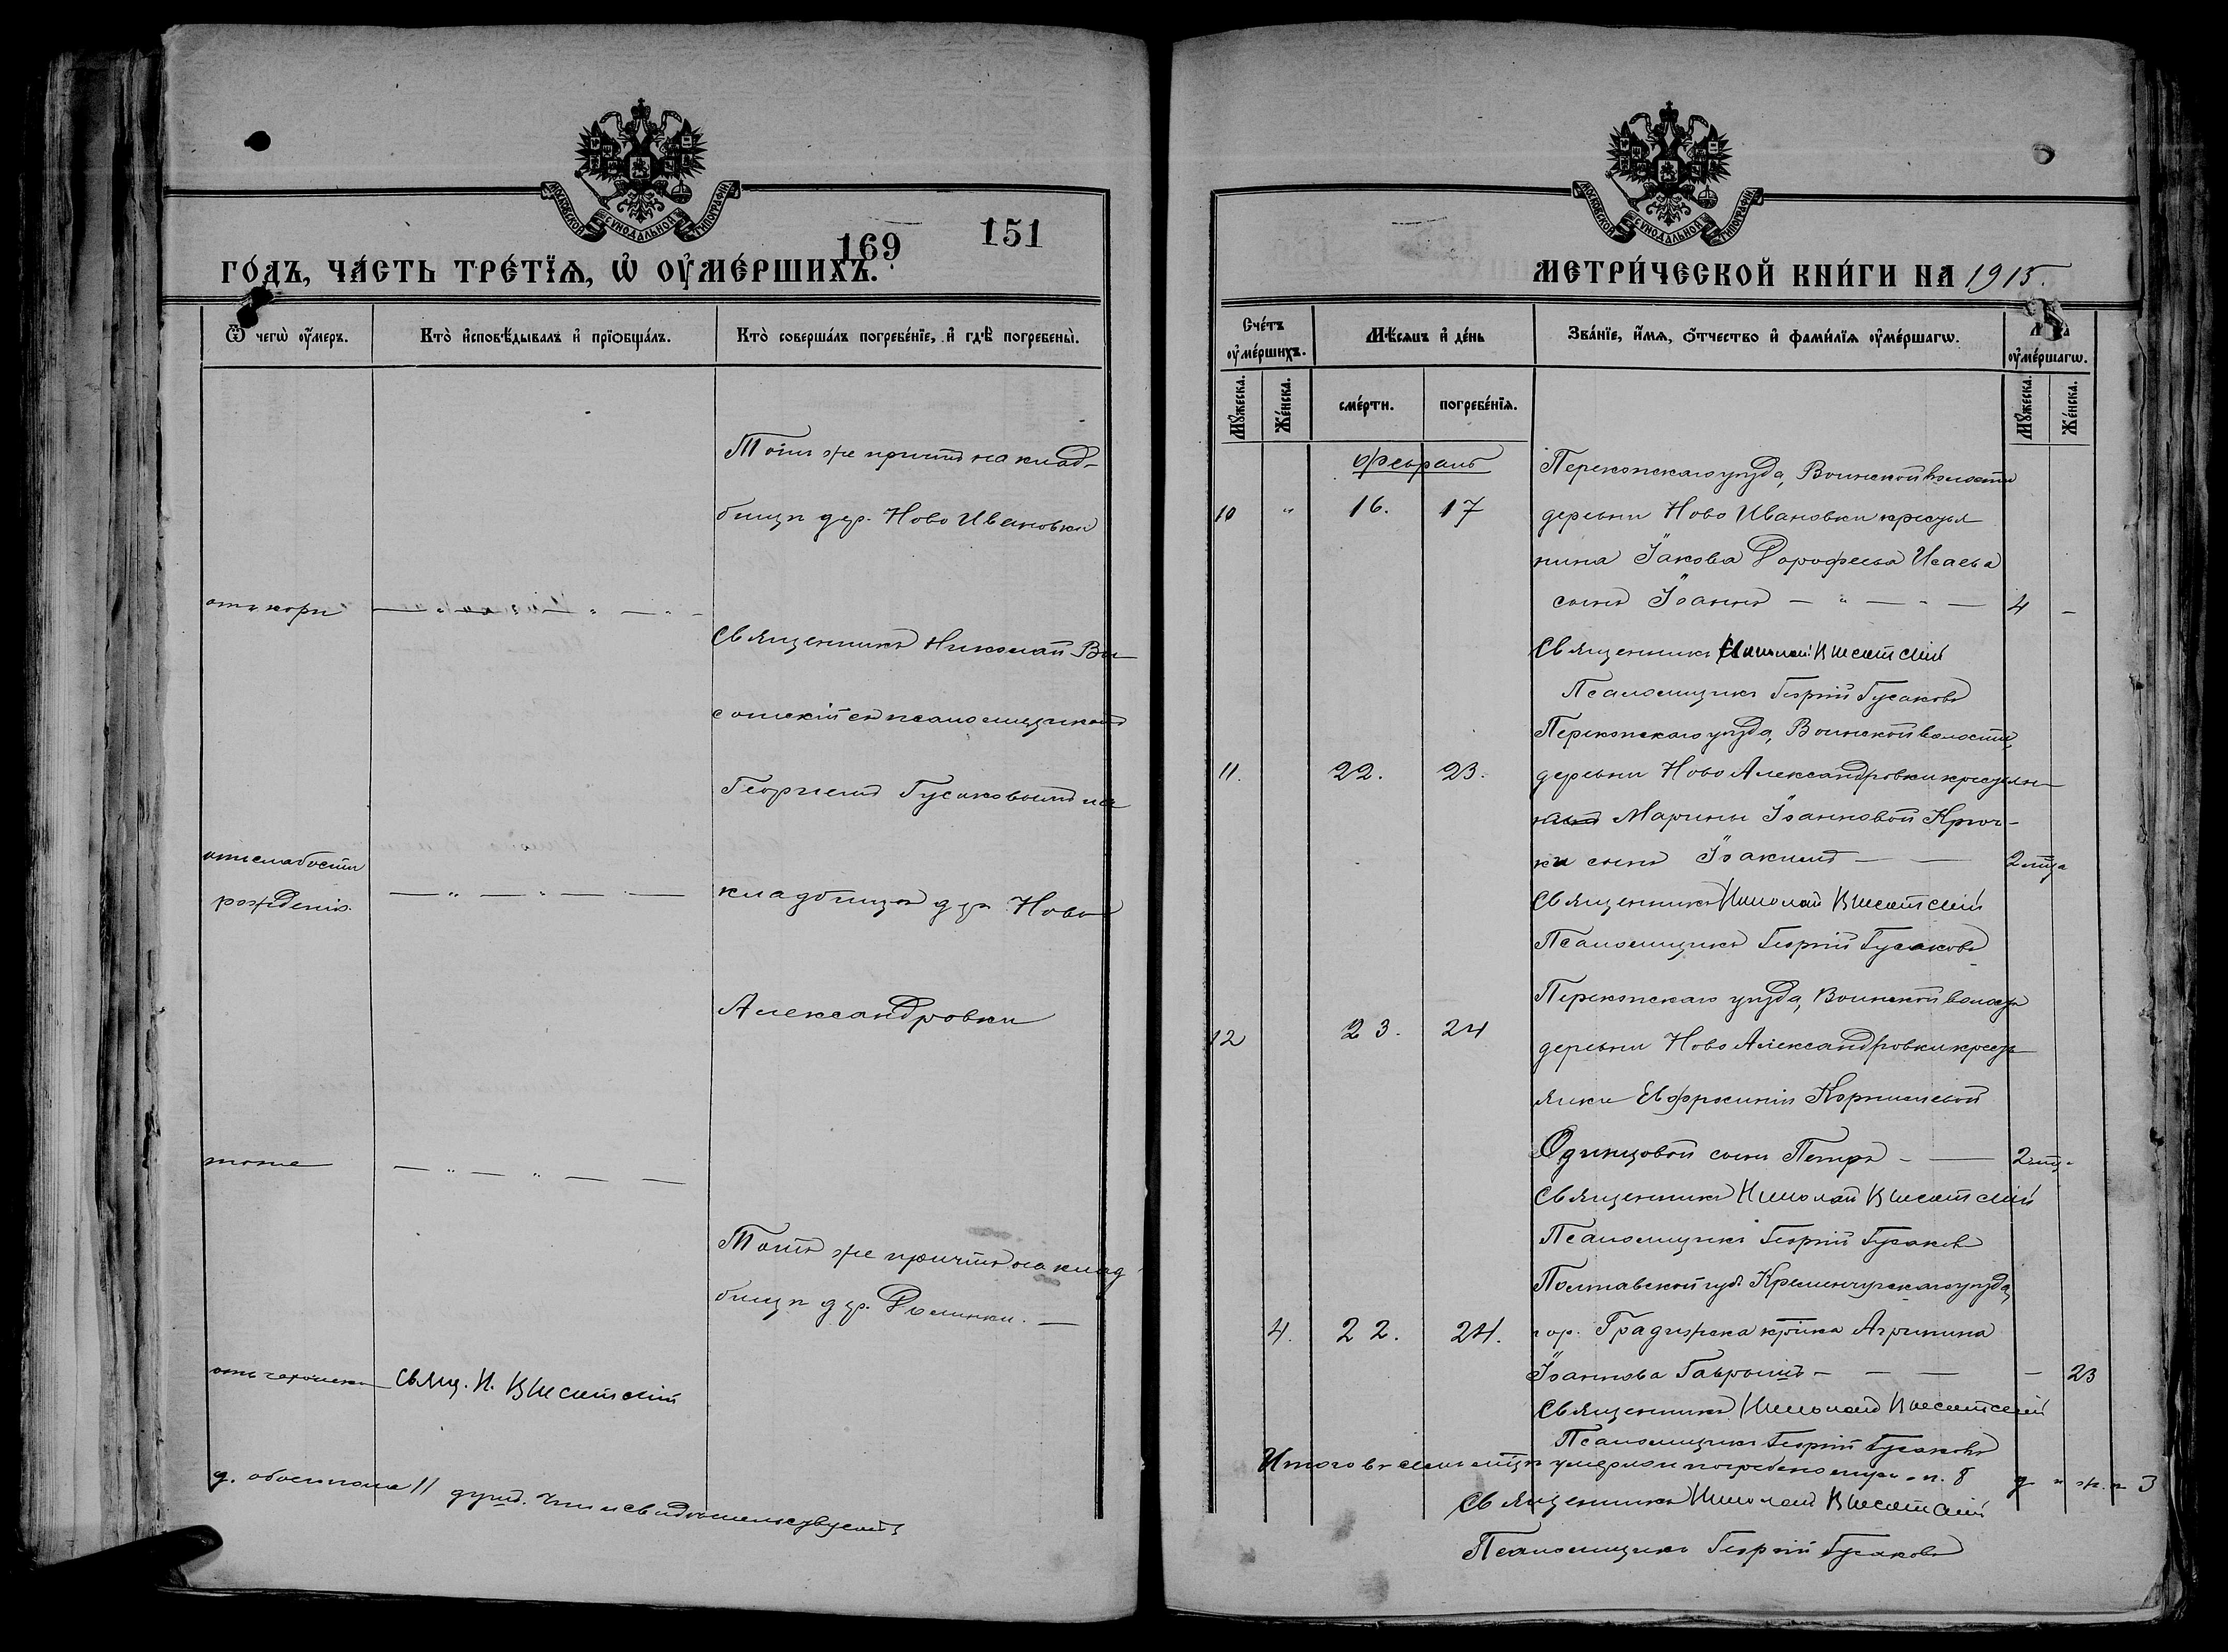 МОСКОВСКОЙ СУНОДАЛЬНОЙ ТИПОГРАФІИ
169
151
ГОДЪ, ЧАСТЬ ТРЕТІЯ, Ѡ ОУМЕРШИХЪ.
Ѿ чегѡ оумеръ.
Кто исповѣдывалъ и пріобщалъ.
Кто совершалъ погребеніе, и гдѣ погребены.
Тотъ же причтъ на клад-
бищѣ дер. Ново Ивановки
отъ кори
Священникъ Николай Ви-
сотскій съ псаломщикомъ
Георгіемъ Гусаковымъ на
отъ слабости
рожденія
кладбищѣ дер. Ново
Александровки
тоже
Тотъ же причтъ на клад
бищѣ дер.
отъ
Свящ. Н. Висотскій
д. обоего пола 11 душъ. Что и свидѣтельствуемъ
МОСКОВСКОЙ СУНОДАЛЬНОЙ ТИПОГРАФІИ
МЕТРИЧЕСКОЙ КНИГИ НА 1915.
Счетъ оумершихъ.
Мѣсяцъ и день
Званіе, имя, отчество и фамилія оумершагѡ.
Лѣта оумершагѡ.
Мужеска.
Женска.
смерти.
погребенія.
Мужеска.
Женска.
Февраль
Перекопскаго уѣзда, Воинской волости
10 " 16. 17 деревни Ново Ивановки крестья
нина Іакова Дорофеева Исаева
сынъ Іоаннъ — " — " — 4 -
Священникъ Николай Висотскій
Псаломщикъ Георгій Гусаковъ
Перекопскаго уѣзда, Воинской волости,
11. 22. 23. деревни Ново Александровки крестьян-
Марины Іоанновой Крюч-
ки сынъ Іоакимъ — — 2 мца
Священникъ Николай Висотскій
Псаломщикъ Георгій Гусаковъ
Перекопскаго уѣзда, Воинской волости
12 23. 24 деревни Ново Александровки кресть
янки Евфросиніи Корнилиевой
Одинцовой сынъ Петръ - — 2 мца
Священникъ Николай Висотскій
Псаломщикъ Георгій Гусаковъ
Полтавской губ. Кременчугскаго уѣзда,
4. 22. 24. гор. Градижска крстка Агрипина
Іоаннова — — — - 23
Священникъ Николай Висотскій
Псаломщикъ Георгій Гусаковъ
Итого въ семъ мцѣ умерло и погребено муж. п. 8 д и ж. п 3
Священникъ Николай Висотскій
Псаломщикъ Георгій Гусаковъ